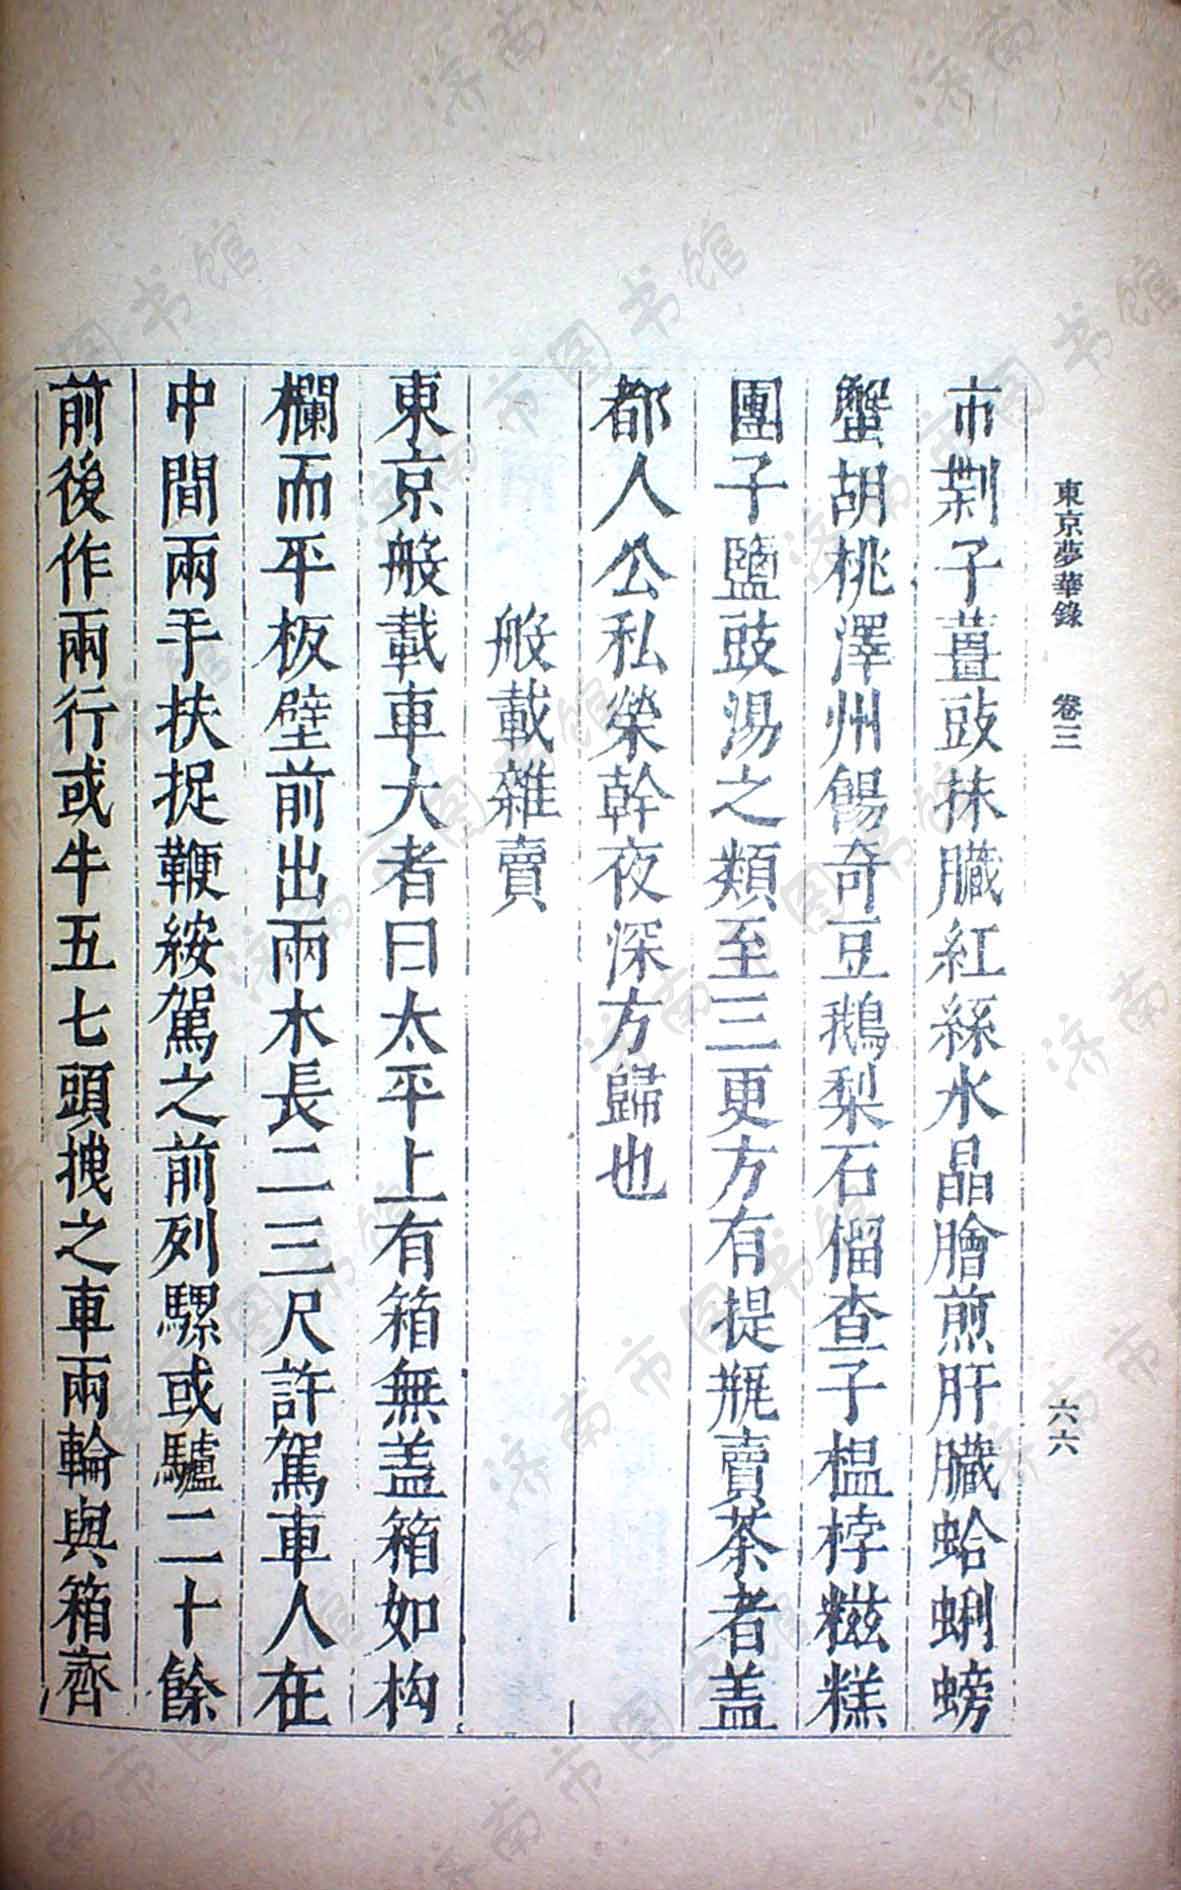 東京夢華錄　卷三　六六
市䔣子薑豉抹臟紅絲水晶膾煎肝臟蛤蜊螃
蟹胡桃澤州餳奇豆鵝梨石榴查子榲桲糍糕
團子鹽豉湯之類至三更方有提瓶賣茶者蓋
都人公私榮幹夜深方歸也
般載雜賣
東京般載車大者曰太平上有箱無蓋箱如构
欄而平板壁前出兩木長二三尺許駕車人在
中間兩手扶捉鞭綏駕之前列騾或驢二十餘
前後作兩行或牛五七頭拽之車兩輪與箱齊
济南市图书馆